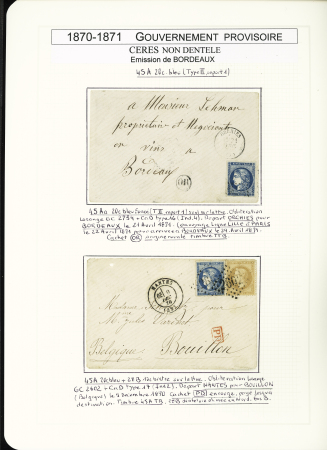 1870-1871 GOUVERNEMENT PROVISOIRE
CERES NON DENTELE
Emission de BORDEAUX
45A 20c bleu (Type II report 1)
a Monsieur Lehman
propriétaire et Négociant
en vins à
Bordeau
OR
45Aa 20c bleu foncé (T II report 1) seul sur lettre. Oblitération
Losange GC 2739 + CàD Type 16 (Ind. 4). Départ ORCHIES pour
BORDEAUX le 21 Avril 1871.
le 22 Avril 1871 pour arrivée à BORDEAUX le 24 Avril 1871.
Cachet (OR) origine rurale timbre TTB
NANTES
Madame
Mr Jules
Belgique Bouillon
PD
45A 20c bleu + 28B 10c bistre sur lettre. Oblitération losange
GC 2602 + CàD Type 17 (Ind 2). Départ NANTES pour BOUILLON
(Belgique) le 9 Décembre 1870. Cachet (PD) en rouge, payé jusqu'à
destination. Timbre 45A TB.